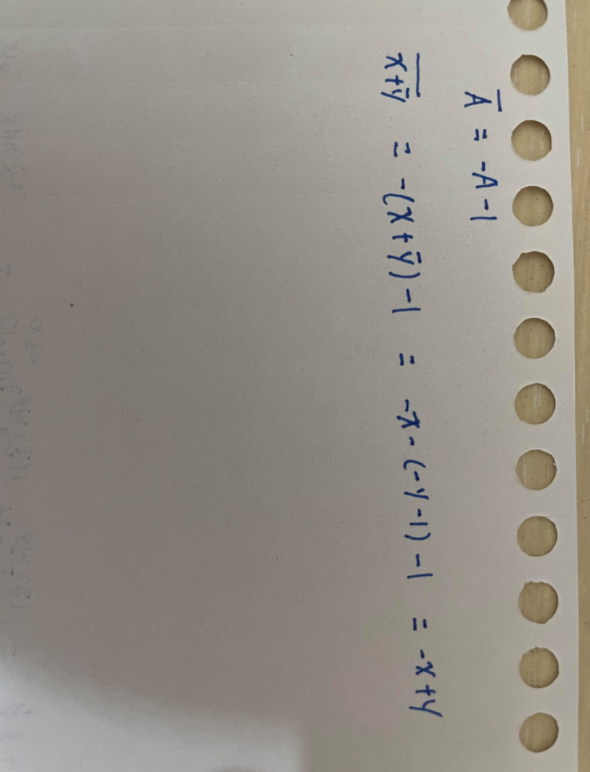 A̅ = -A-1
x̅+̅y̅̅ = -(x+y̅)-1 = -x-(-y-1)-1 = -x+y